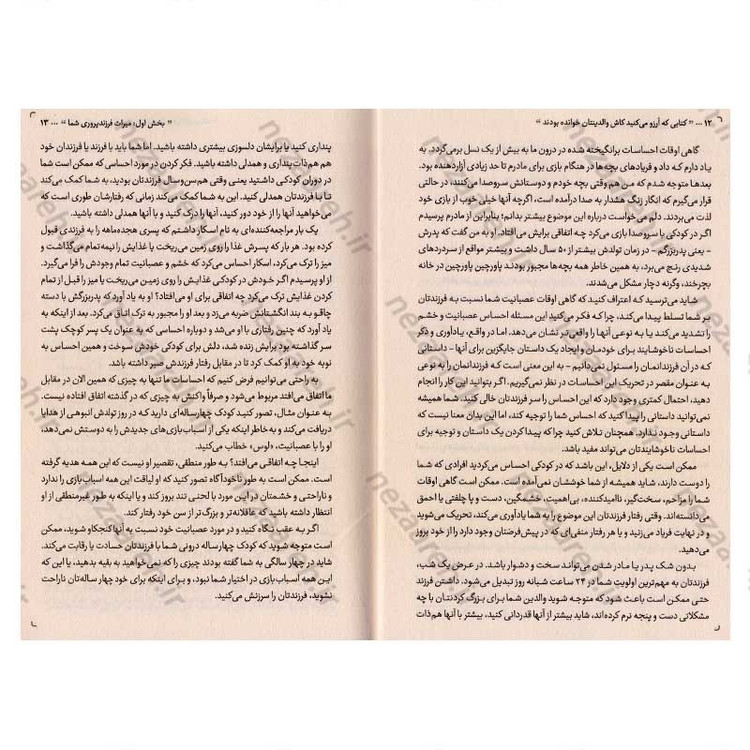 ۱۲ ... « کتابی که آرزو می‌کنید کاش والدینتان خوانده بودند »
گاهی اوقات احساسات برانگیخته شده در درون ما به بیش از یک نسل برمی‌گردد. به
یاد دارم که داد و فریادهای بچه‌ها در هنگام بازی برای مادرم تا حد زیادی آزاردهنده بود.
بعدها متوجه شدم که من هم وقتی بچه خودم و دوستانش سروصدا می‌کنند، در حالتی
قرار می‌گیرم که انگار زنگ هشدار به صدا درآمده است، اگرچه آنها خیلی خوب از بازی خود
لذت می‌بردند. دلم می‌خواست درباره این موضوع بیشتر بدانم؛ بنابراین از مادرم پرسیدم
اگر در کودکی با سروصدا بازی می‌کرد چه اتفاقی برایش می‌افتاد. او به من گفت که پدرش
- یعنی پدربزرگم - در زمان تولدش بیشتر از ۵۰ سال داشت و بیشتر مواقع از سردردهای
شدیدی رنج می‌برد، به همین خاطر همه بچه‌ها مجبور بودند پاورچین پاورچین در خانه
بچرخند، وگرنه دچار مشکل می‌شدند.
شاید می‌ترسید که اعتراف کنید که گاهی اوقات عصبانیت شما نسبت به فرزندتان
بر شما تسلط پیدا می‌کند، چرا که فکر می‌کنید این مسئله احساس عصبانیت و خشم
را تشدید می‌کند یا به نوعی آنها را واقعی‌تر نشان می‌دهد. اما در واقع، یادآوری و ذکر
احساسات ناخوشایند برای خودمان و ایجاد یک داستان جایگزین برای آنها - داستانی
که در آن فرزندانمان را مسئول نمی‌دانیم - به این معنی است که فرزندانمان را به نوعی
به عنوان مقصر در تحریک این احساسات در نظر نمی‌گیریم. اگر بتوانید این کار را انجام
دهید، احتمال کمتری وجود دارد که این احساس را سر فرزندتان خالی کنید. شما همیشه
نمی‌توانید داستانی را پیدا کنید که احساس شما را توجیه کند، اما این بدان معنا نیست که
داستانی وجود ندارد. همچنان تلاش کنید چرا که پیدا کردن یک داستان و توجیه برای
احساسات ناخوشایندتان می‌تواند مفید باشد.
ممکن است یکی از دلایل، این باشد که در کودکی احساس می‌کردید افرادی که شما
را دوست دارند، شاید همیشه از شما خوششان نمی‌آمده است. ممکن است گاهی اوقات
شما را مزاحم، سخت‌گیر، ناامیدکننده، بی‌اهمیت، خشمگین، دست و پا چلفتی یا احمق
می‌دانسته‌اند. وقتی رفتار فرزندتان این موضوع را به شما یادآوری می‌کند، تحریک می‌شوید
و در نهایت فریاد می‌زنید و یا هر رفتار منفی‌ای که در پیش‌فرضتان وجود دارد را از خود بروز
می‌دهید.
بدون شک پدر یا مادر شدن می‌تواند سخت و دشوار باشد. در عرض یک شب،
فرزندتان به مهم‌ترین اولویت شما در ۲۴ ساعت شبانه روز تبدیل می‌شود. داشتن فرزند
حتی ممکن است باعث شود که متوجه شوید والدین شما برای بزرگ کردنتان با چه
مشکلاتی دست و پنجه نرم کرده‌اند، شاید بیشتر از آنها قدردانی کنید، بیشتر با آنها هم‌ذات
« بخش اول: میراث فرزندپروری شما » ... ۱۳
پنداری کنید یا برایشان دلسوزی بیشتری داشته باشید. اما شما باید با فرزند یا فرزندان خود
هم هم‌ذات‌پنداری و همدلی داشته باشید. فکر کردن در مورد احساسی که ممکن است شما
در دوران کودکی داشتید یعنی وقتی هم‌سن‌وسال فرزندتان بودید، به شما کمک می‌کند
تا با فرزندتان همدلی کنید. این به شما کمک می‌کند زمانی که رفتارشان طوری است که
می‌خواهید آنها را از خود دور کنید، آنها را درک کنید و با آنها همدلی داشته باشید.
یک بار مراجعه‌کننده‌ای به نام اسکار داشتم که پسری هجده‌ماهه را به فرزندی قبول
کرده بود. هر بار که پسرش غذا روی زمین می‌ریخت یا غذایش را نیمه‌تمام می‌گذاشت و
میز را ترک می‌کرد، اسکار احساس می‌کرد که خشم و عصبانیت تمام وجودش را فرا می‌گیرد.
از او پرسیدم اگر خودش در کودکی غذایش را روی زمین می‌ریخت یا میز را قبل از تمام
کردن غذایش ترک می‌کرد چه اتفاقی برای او می‌افتاد؟ او به یاد آورد که پدربزرگش با دسته
چاقو به بند انگشتانش ضربه می‌زد و بعد او را مجبور به ترک اتاق می‌کرد. بعد از اینکه به
یاد آورد که چنین رفتاری با او می‌شد و دوباره احساسی که به عنوان یک پسر کوچک پشت
سر گذاشته بود برایش زنده شد، دلش برای کودکی خودش سوخت و همین احساس به
نوبه خود به او کمک کرد تا در مقابل رفتار فرزندش صبر داشته باشد.
به راحتی می‌توانیم فرض کنیم که احساسات ما تنها به چیزی که همین الان در مقابل
ما اتفاق می‌افتد مربوط می‌شود و صرفاً واکنش به چیزی که در گذشته اتفاق افتاده نیست.
به عنوان مثال، تصور کنید کودک چهارساله‌ای دارید که در روز تولدش انبوهی از هدایا
دریافت می‌کند و به خاطر اینکه یکی از اسباب‌بازی‌های جدیدش را به دوستش نمی‌دهد،
او را با عصبانیت، «لوس» خطاب می‌کنید.
اینجا چه اتفاقی می‌افتد؟ به طور منطقی، تقصیر او نیست که این همه هدیه گرفته
است. ممکن است به طور ناخودآگاه تصور کنید که او لیاقت این همه اسباب‌بازی را ندارد
و ناراحتی و خشمتان در این مورد با لحنی تند بروز کند و یا اینکه به طور غیرمنطقی از او
انتظار داشته باشید که عاقلانه‌تر و بزرگ‌تر از سن خود رفتار کند.
اگر به عقب نگاه کنید و در مورد عصبانیت خود نسبت به آنها کنجکاو شوید، ممکن
است متوجه شوید که کودک چهارساله درونی شما با فرزندتان حسادت یا رقابت می‌کند.
شاید در چهار سالگی به شما گفته بودند چیزی را که نمی‌خواهید به بقیه بدهید، یا این که
این همه اسباب‌بازی در اختیار شما نبود، و برای اینکه برای خود چهار ساله‌تان ناراحت
نشوید، فرزندتان را سرزنش می‌کنید.
nezafateh.ir